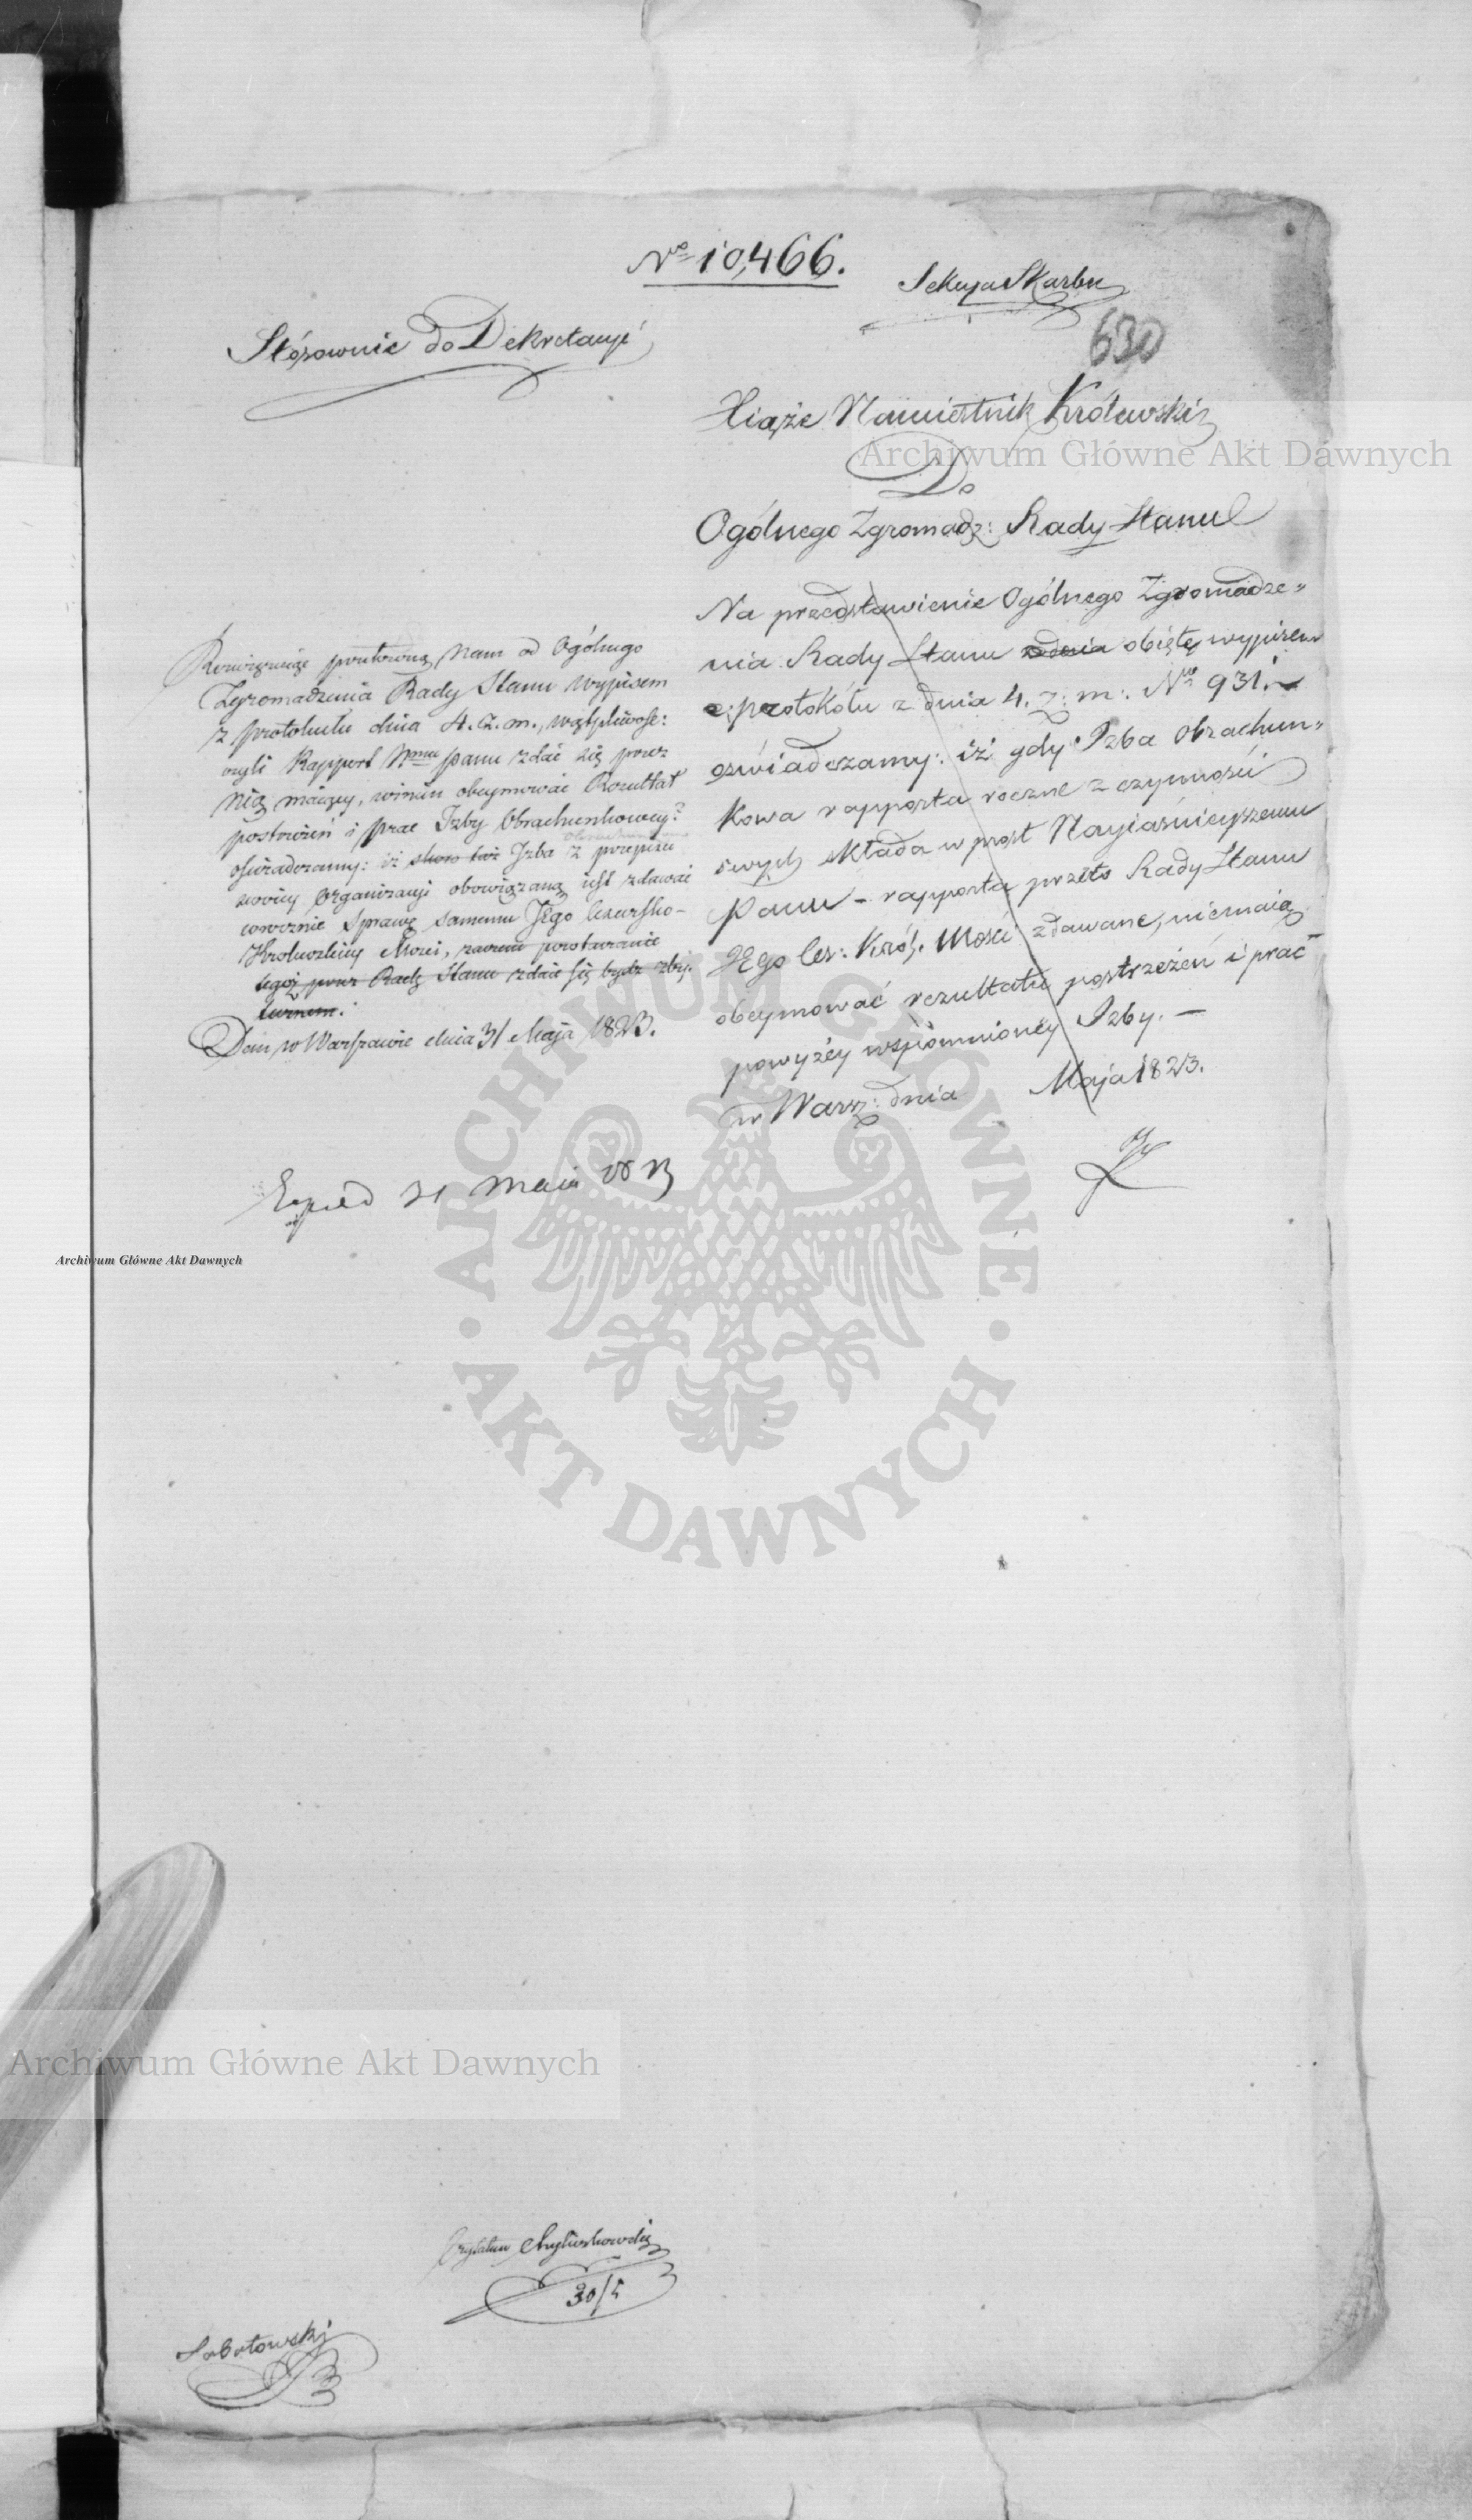 No 10,466.
Sekcya Skarbu
630
Stósownie do Dekretacyi
Xiąże Namiestnik Królewski
Do
Ogólnego Zgromadz: Rady Stanu
Na przedstawienie Ogólnego Zgromadze-
nia Rady Stanu obięte wypisem
z protokółu z dnia 4. z: m: Nro 931.
oświadczamy: iż gdy Izba Obrachun-
kowa rapporta roczne z czynności
swych składa w prost Nayiaśnieyszemu
Panu - rapporta przeto Rady Stanu
JEgo Ces: Król. Mości zdawane, niemaią
obeymować rezultatu postrzeżeń i prac
powyżéy wspomnioney Izby. —
w Warsz: dnia Maja 1823.
Rozwiązuiąc Nam od Ogólnego
Zgromadzenia Rady Stanu wypisem
z protokułu dnia 4. z. m., wątpliwość:
czyli Rapport Nmu Panu zdać się przez
Nią maiący, winien obeymować Rezultat
postrzeżeń i prac Izby Obrachunkowey?
oświadczamy: iż skoro też Izba z przepisu
swoiey Organizacyi obowiązaną iest zdawać
corocznie Sprawę samemu JEgo Cesarsko-
Królewskiey Mości, powtarzanie
tegoż przez Radę Stanu zdaie się bydź zby-
tecznem.
Dan w Warszawie dnia 31 Maja 1823.
Exped 31 Maia 1823
Archiwum Główne Akt Dawnych
Archiwum Główne Akt Dawnych
ARCHIWUM GŁÓWNE AKT DAWNYCH
Archiwum Główne Akt Dawnych
Czytałem
30/5
Sobotowski